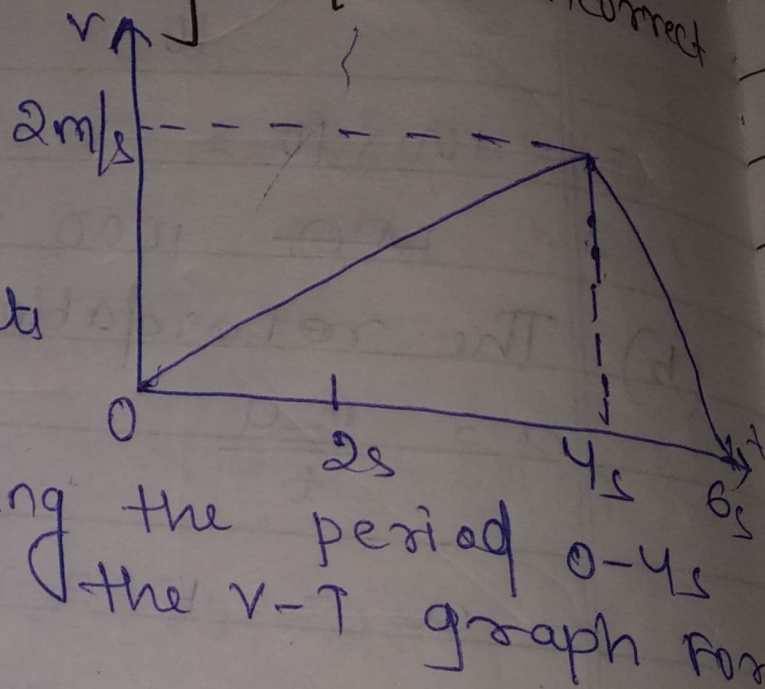 correct
v
2m/s
ts
0
2s
4s
6s
t
ng the period 0-4s
the V-T graph For